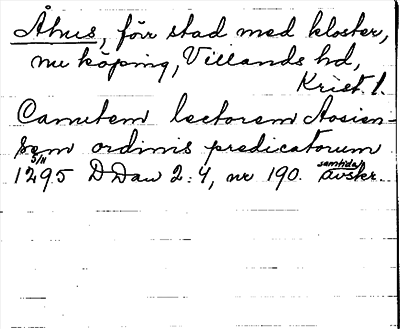 Åhus, förr stad med kloster,
nu köping, Villands hd,
Krist. l.
Canutem lectorem Aosien-
sem ordinis predicatorum
5/11
1295 DDan 2:4, nr 190. samtida avskr.